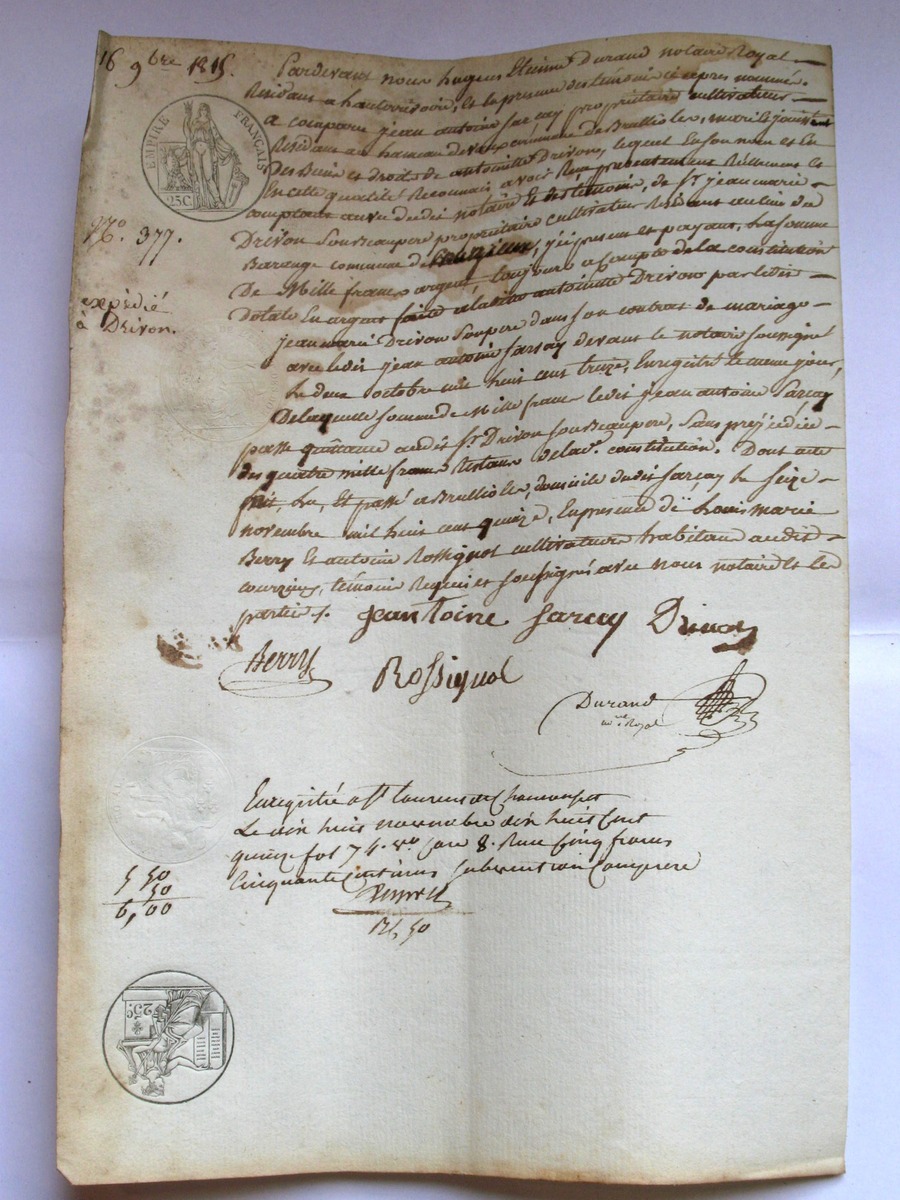 16 9bre 1815.
EMPIRE FRANÇAIS
25C
No. 377.
expédié
à Drivon.
Pardevant nous hugues Etienne Durand notaire Royal
Residant a hauterivoire, Et la presence des temoins ci apres nommés
a comparu jean antoine Sarcay proprietaire cultivateur
Residant au hameau de commune de Brullioles, mari et jouissant
Des Biens et droits de antoinette Drivon, lequel En son nom et En
En cette qualité Reconnait avoir Reçu presentement Réellement et
comptant au vu dudit notaire Et des temoins, de Sr. jean marie
Drivon Son Beaupere proprietaire cultivateur Residant au lieu du
Barange commune de , ici present et payant, La somme
De Mille francs argent toujours a compte de la constitution
Dotale En argent faite a ladite antoinette Drivon par ledit
jean marie Drivon Son pere dans son contrat de mariage
avec ledit jean antoine Sarcay devant le notaire soussigné
Le deux octobre mil huit cent treize, Enregistré Le meme jour,
De laquelle somme de Mille francs ledit jean antoine Sarcay
passe quittance audit Sr. Drivon son Beaupere, Sans préjudice
des quatre mille francs Restant de lad. constitution. Dont acte
fait, Lu, Et passé a Brullioles, domicile dudit Sarcay le Seize
novembre mil huit cent quinze, En presence de Louis marie
Berry Et antoine Rossignol cultivateurs habitans audit
courzieu, témoins Requis et Soussignés avec nous notaire Et les
parties.
Jeantoine Sarcay Drivon
Berry
Rossignol
Durand
nre. Royal
Enregistré a St. Laurent de Chamousset
Le dix huit novembre dix huit cent
quinze fol 74. vo. case 8. Reçu cinq francs
Cinquante centimes subvention comprise
5 50
50
6,00
R. 50
25C